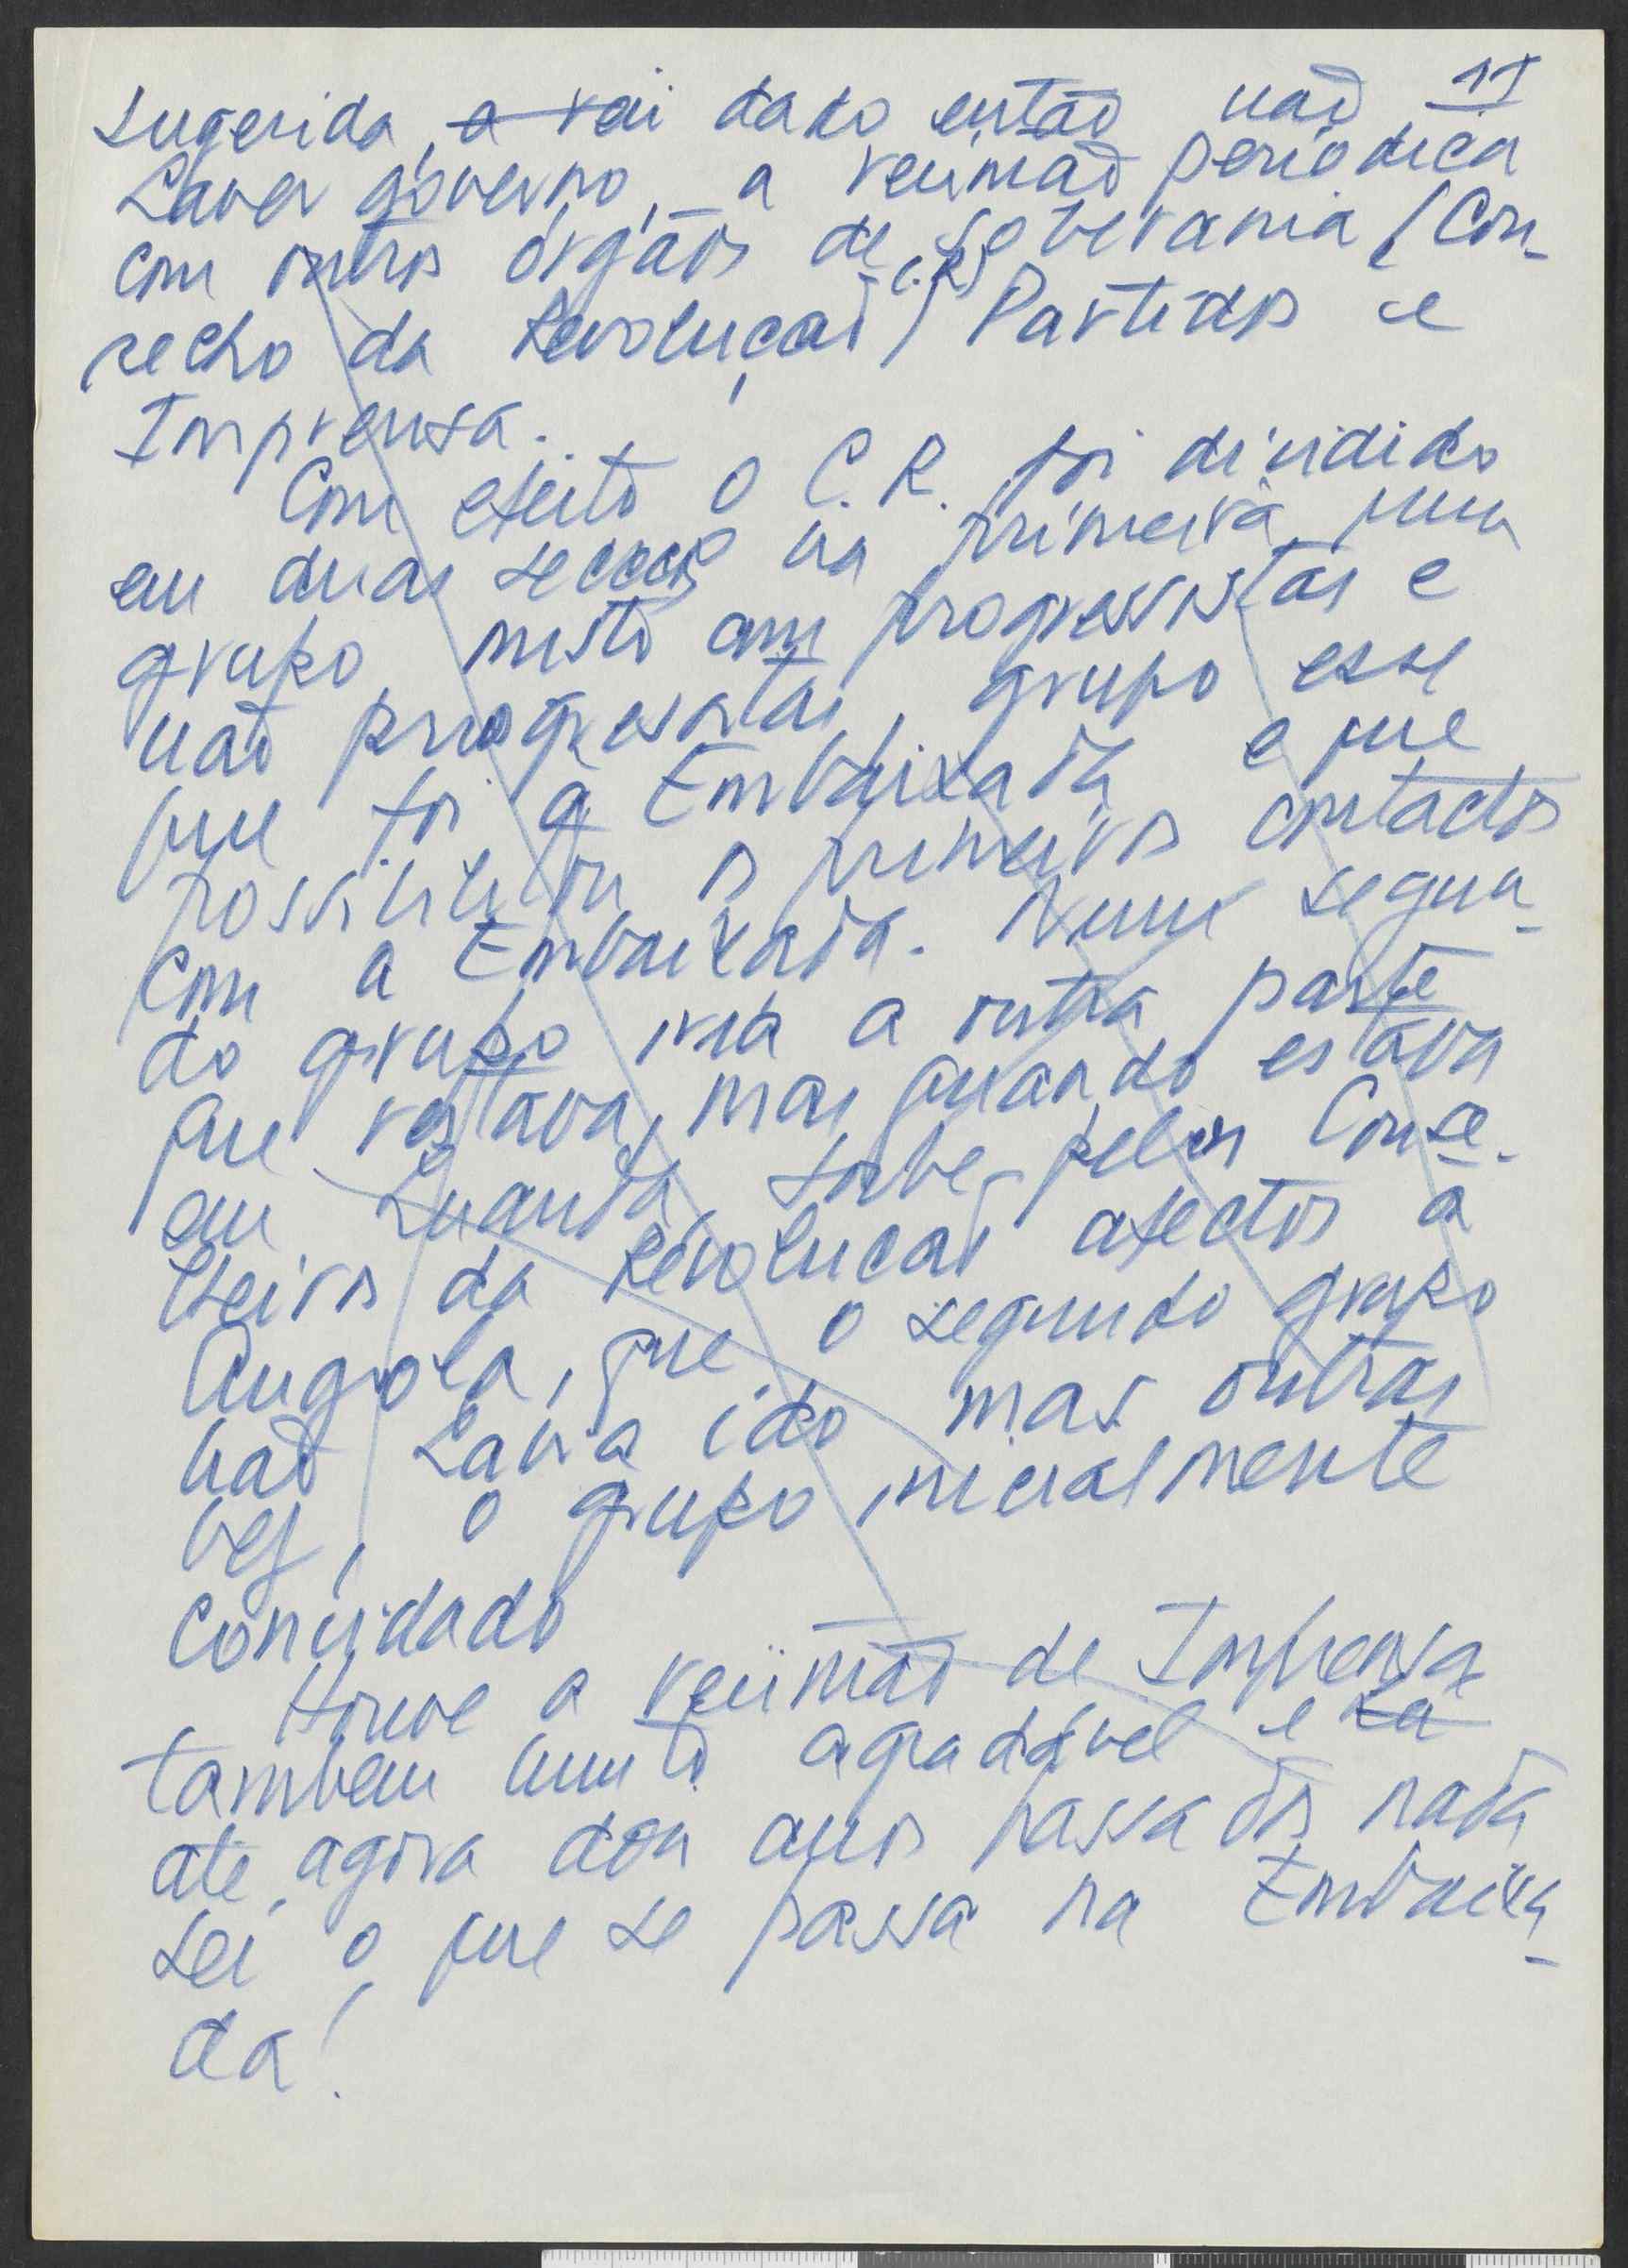 11
sugerida, a rei dado então não
haver governo, a reunião periódica
com outros órgãos de soberania (Con-
selho da Revolução - C.R.) Partidos e
Imprensa.
Com efeito o C.R. foi dividido
em duas secções na primeira, num
grupo misto com progressistas e
não progressistas, grupo esse
que foi à Embaixada e que
possibilitou os primeiros contactos
com a Embaixada. Num segun-
do grupo iria a outra parte
que restava, mas quando estava
em Luanda soube pelos Conse-
lheiros da Revolução afectos a
Angola, que o segundo grupo
não havia ido mas outra
vez, o grupo inicialmente
convidado
Houve a reunião de Imprensa
também muito agradável e
até agora dois anos passados nada
sei o que se passa na Embaixa-
da!